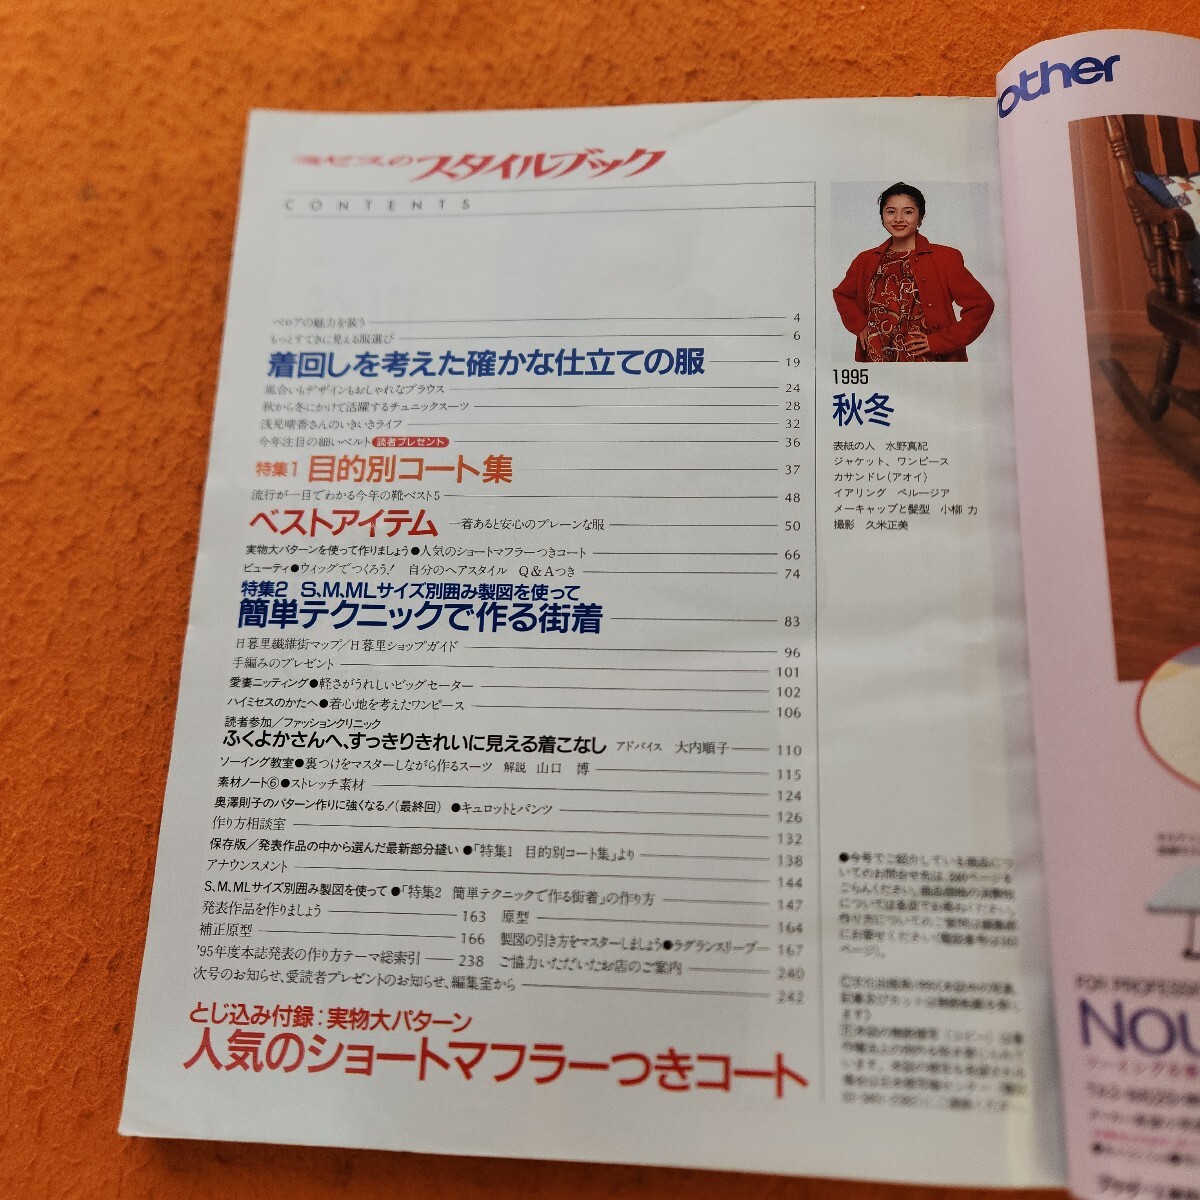 ミセスのスタイルブック
CONTENTS
ベロアの魅力を装う 4
もっとすてきに見える服選び 6
着回しを考えた確かな仕立ての服 19
風合いもデザインもおしゃれなブラウス 24
秋から冬にかけて活躍するチュニックスーツ 28
浅見晴香さんのいきいきライフ 32
今年注目の細いベルト 読者プレゼント 36
特集1 目的別コート集 37
流行が一目でわかる今年の靴ベスト5 48
ベストアイテム 一着あると安心のプレーンな服 50
実物大パターンを使って作りましょう●人気のショートマフラーつきコート 66
ビューティ●ウィッグでつくろう! 自分のヘアスタイル Q&Aつき 74
特集2 S、M、MLサイズ別囲み製図を使って
簡単テクニックで作る街着 83
日暮里繊維街マップ/日暮里ショップガイド 96
手編みのプレゼント 101
愛妻ニッティング●軽さがうれしいビッグセーター 102
ハイミセスのかたへ●着心地を考えたワンピース 106
読者参加/ファッションクリニック
ふくよかさんへ、すっきりきれいに見える着こなし アドバイス 大内順子 110
ソーイング教室●裏つけをマスターしながら作るスーツ 解説 山口 博 115
素材ノート⑥●ストレッチ素材 124
奥澤則子のパターン作りに強くなる!(最終回) ●キュロットとパンツ 126
作り方相談室 132
保存版/発表作品の中から選んだ最新部分縫い ●「特集1 目的別コート集」より 138
アナウンスメント 144
S、M、MLサイズ別囲み製図を使って ●「特集2 簡単テクニックで作る街着」の作り方 147
発表作品を作りましょう 163 原型 164
補正原型 166 製図の引き方をマスターしましょう●ラグランスリーブ 167
'95年度本誌発表の作り方テーマ総索引 238 ご協力いただいたお店のご案内 240
次号のお知らせ、愛読者プレゼントのお知らせ、編集室から 242
とじ込み付録:実物大パターン
人気のショートマフラーつきコート
1995
秋冬
表紙の人 水野真紀
ジャケット、ワンピース
カサンドレ(アオイ)
イアリング ペルージア
メーキャップと髪型 小柳 力
撮影 久米正美
●今号でご紹介している商品につ
いてのお問合せ先は、240ページを
other
FOR PROFESS
NOU